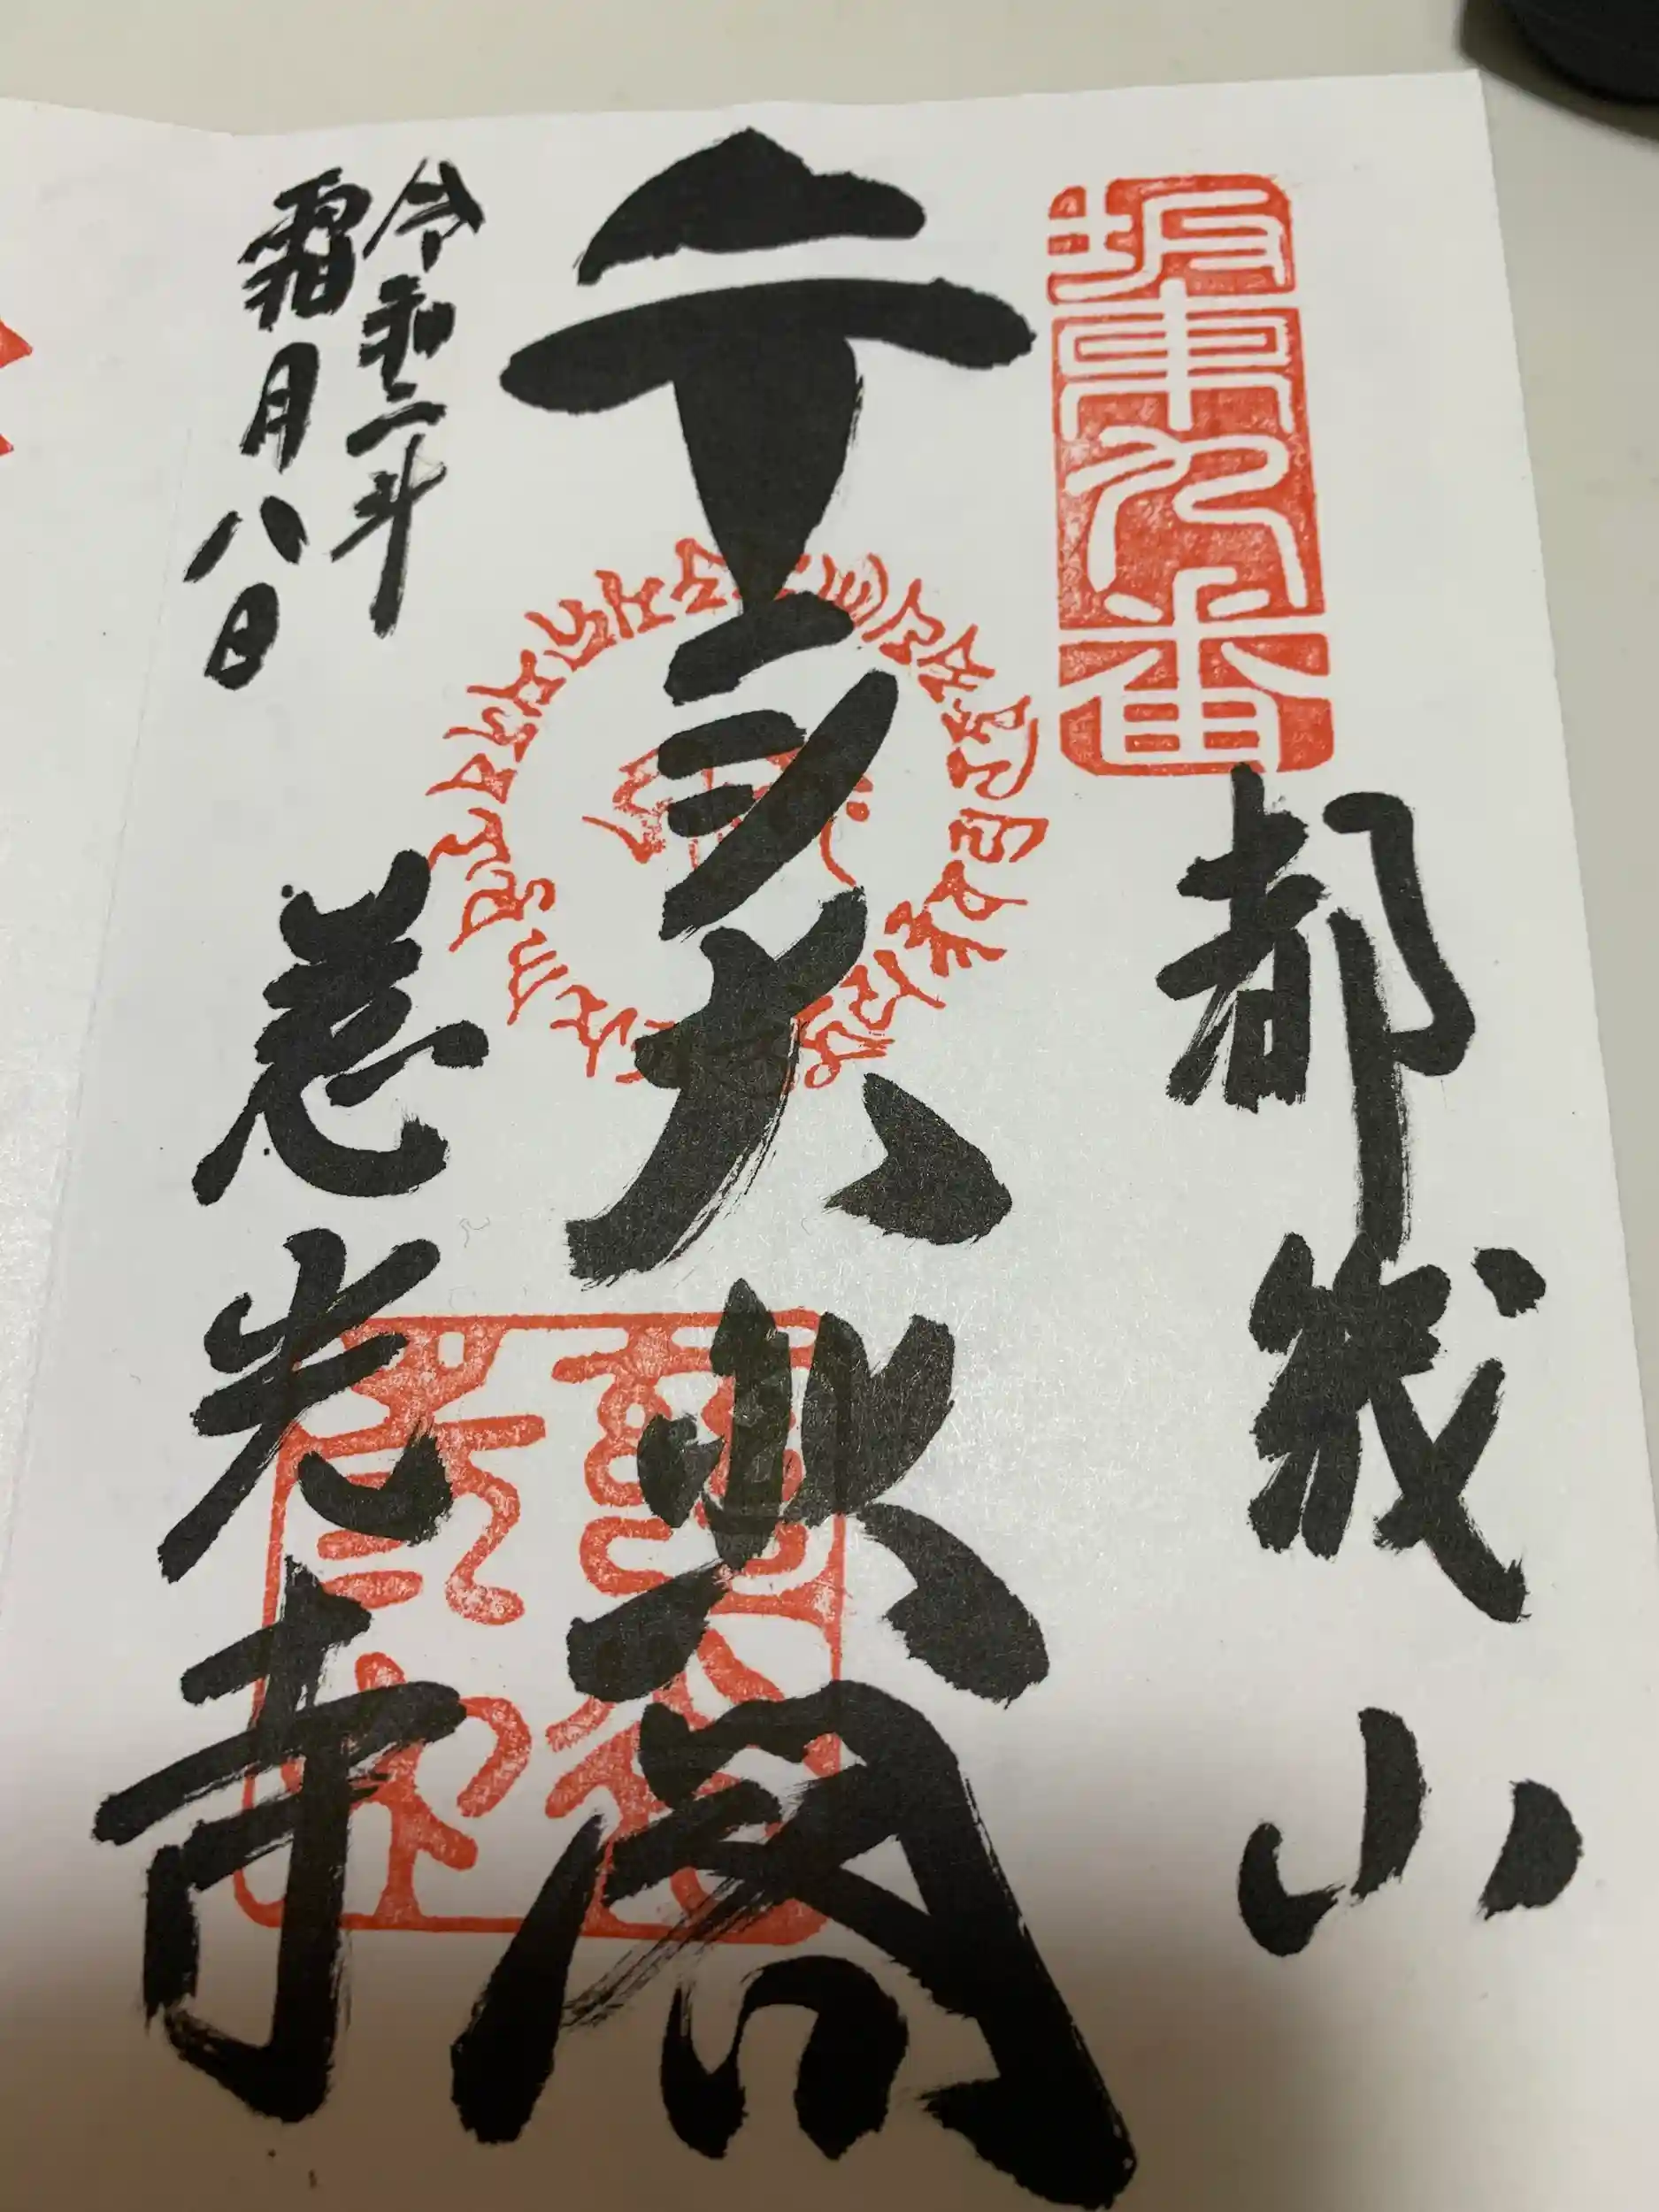 坂東九番
都幾山
千手大悲閣
令和二年
霜月八日
慈光寺